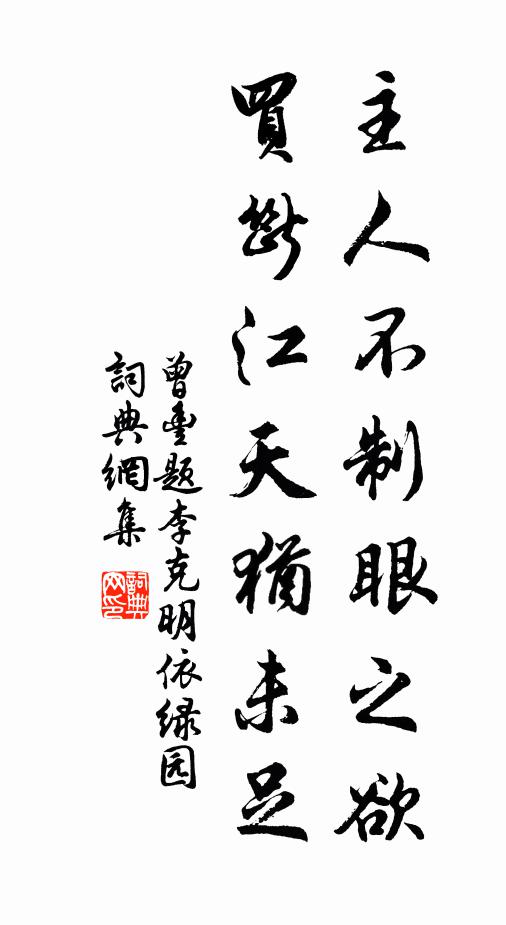 主人不制眼之欲
買斷江天猶未足
曾豊题李克明依绿园
詞典網集
詞典網印